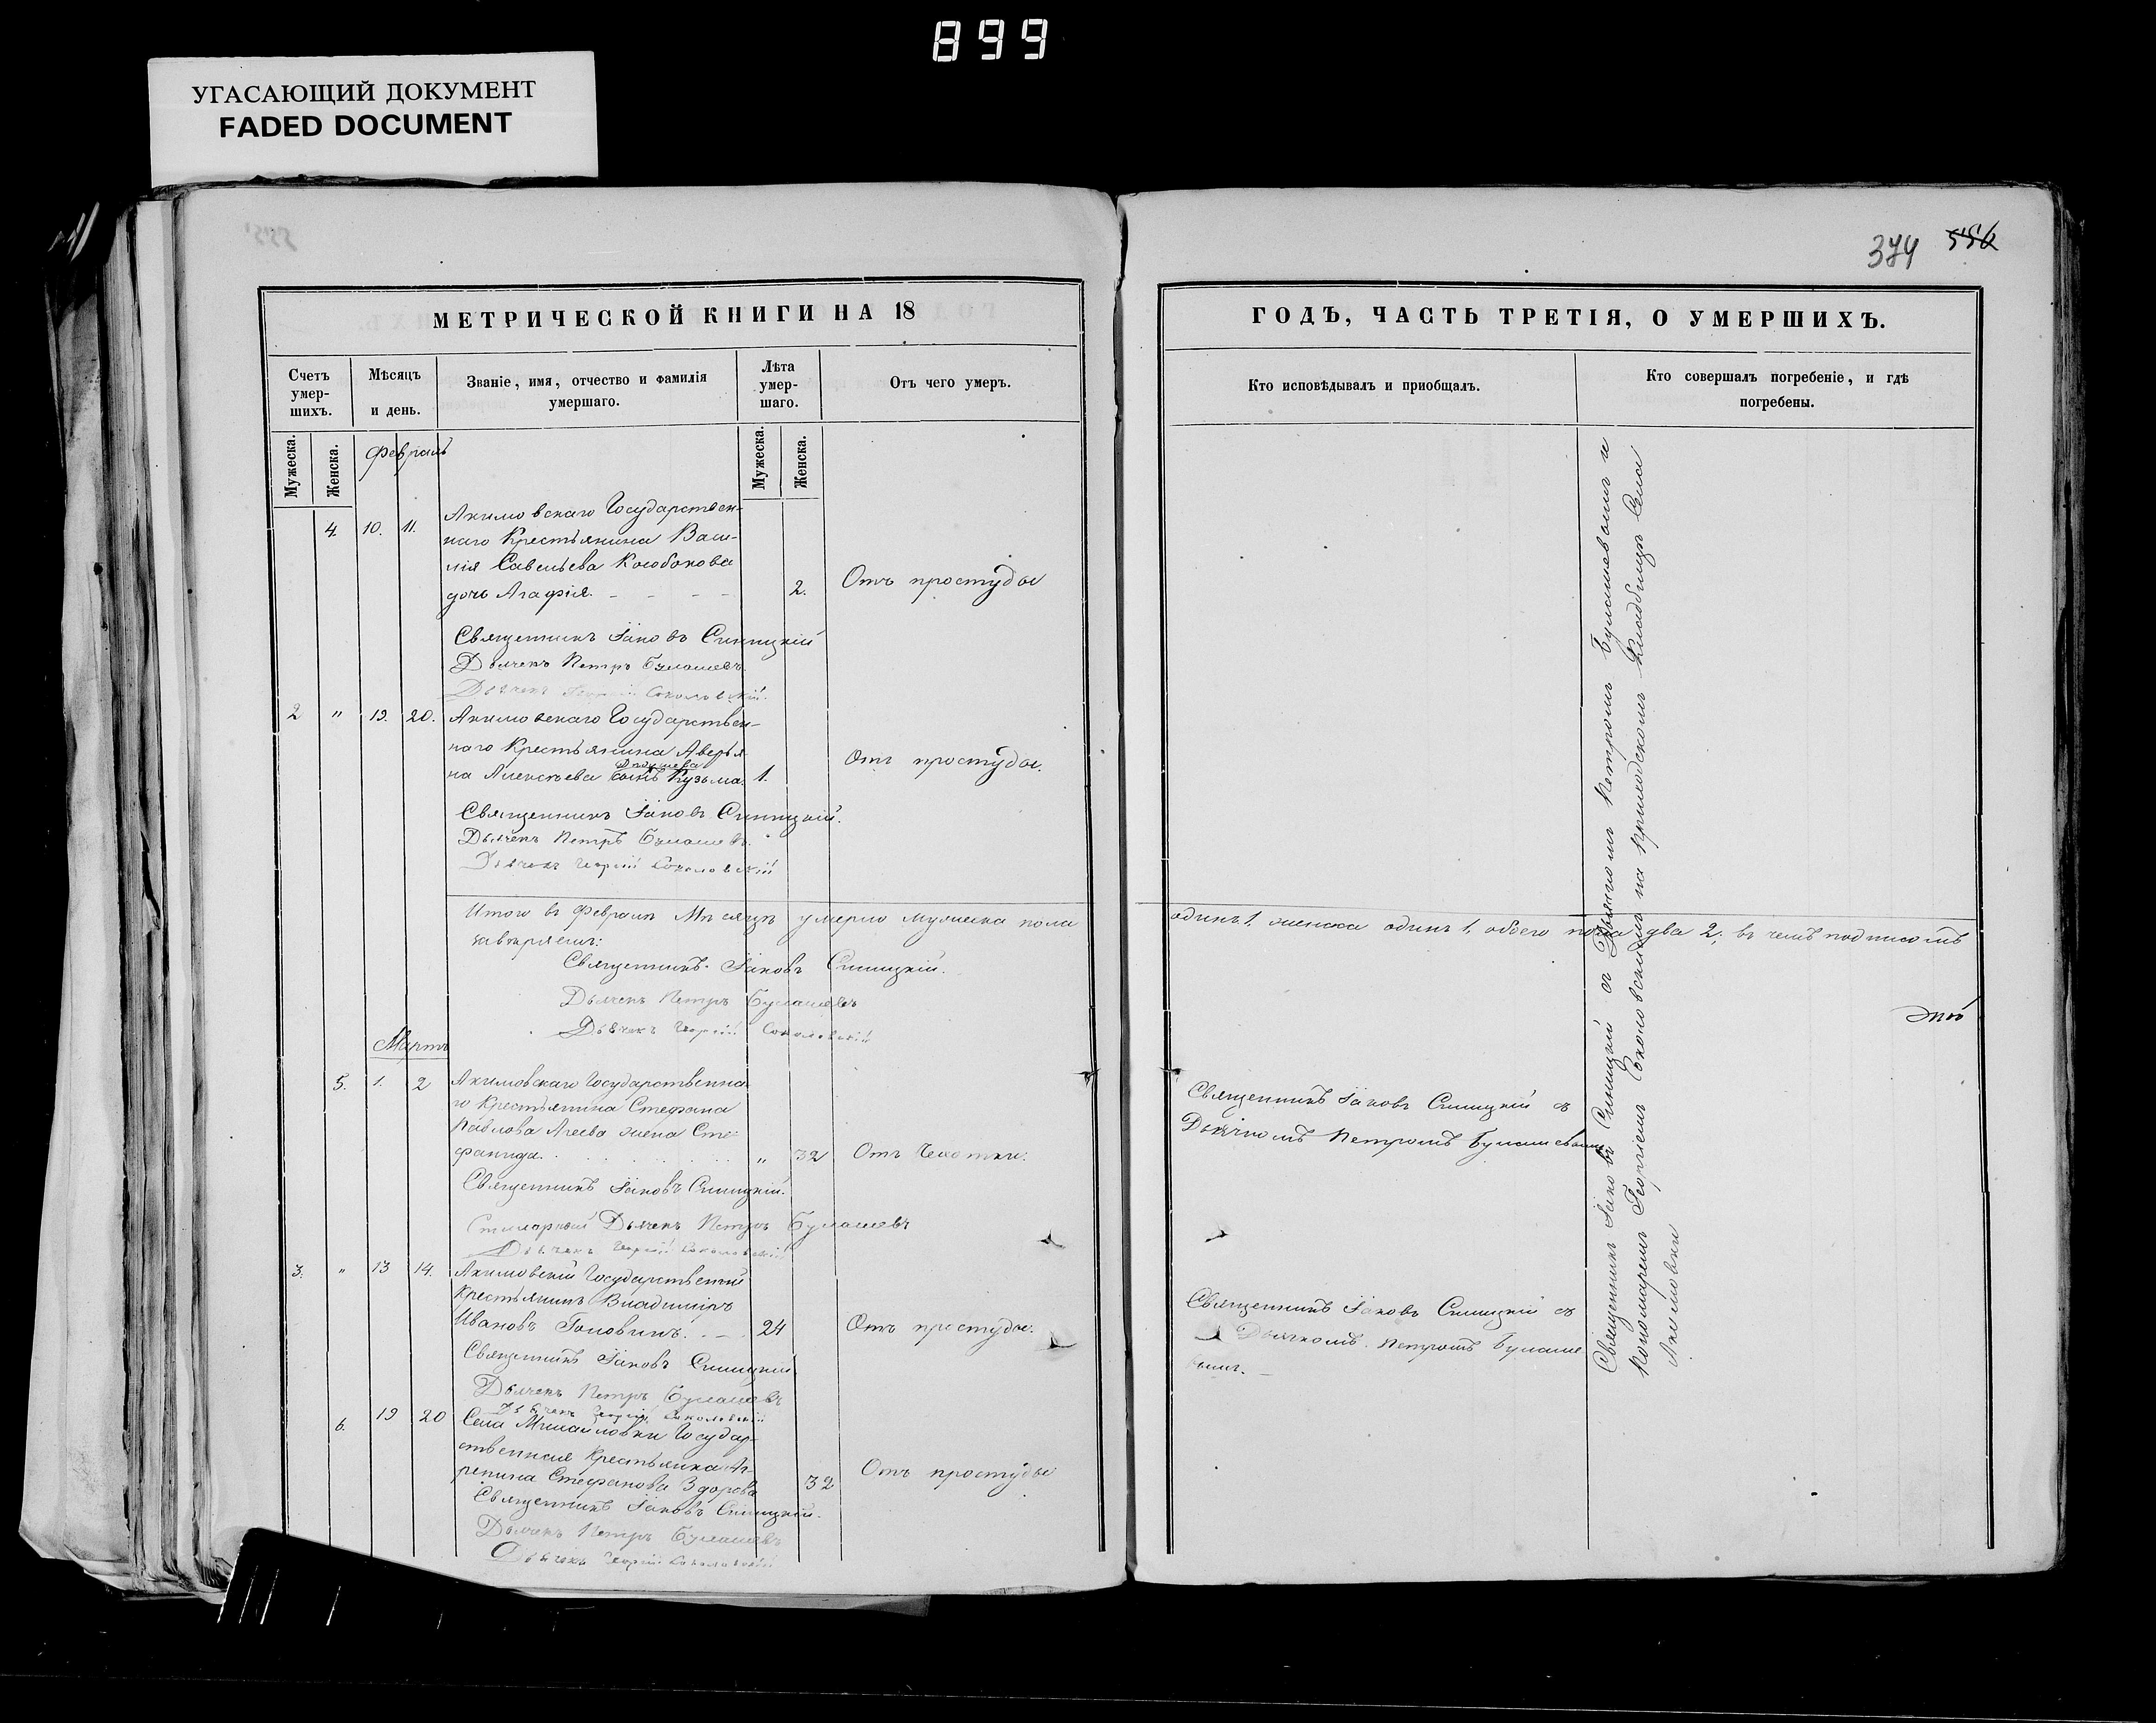 899
УГАСАЮЩИЙ ДОКУМЕНТ
FADED DOCUMENT
374 556
МЕТРИЧЕСКОЙ КНИГИ НА 18
Счетъ умер-шихъ.
Мѣсяцъ и день.
Званіе, имя, отчество и фамилія умершаго.
Лѣта умер-шаго.
Отъ чего умеръ.
Мужеска.
Женска.
Мужеска.
Женска.
Февраль
Акимовскаго Государствен-
4. 10. 11. наго Крестьянина Васи-
лія Савельева Кособокова
дочь Агафія. 2. Отъ простуды
Священникъ Іаковъ Синицкій
Дьячекъ Петръ Булашевъ
Дьячекъ Георгій Соколовскій.
2 " 19. 20. Акимовскаго Государствен-
наго Крестьянина Аверья
на Алексѣева сынъ Кузьма. 1. Отъ простуды.
Священникъ Іаковъ Синицкій.
Дьячекъ Петръ Булашевъ.
Дьячекъ Георгій Соколовскій
Итого въ Февралѣ Мѣсяцѣ умерло мужеска пола
завѣряемъ:
Священникъ Іаковъ Синицкій.
Дьячекъ Петръ Булашевъ
Дьячекъ Георгій Соколовскій
Мартъ
5. 1. 2 Акимовскаго Государственна
го Крестьянина Стефана
Павлова Агеева жена Сте
фанида. " 32 Отъ Чахотки.
Священникъ Іаковъ Синицкій.
Дьячекъ Петръ Булашевъ
Дьячекъ Георгій Соколовскій
3. " 13 14. Акимовскій Государственный
Крестьянинъ Владиміръ
Ивановъ Головинъ. 24 Отъ простуды.
Священникъ Іаковъ Синицкій
Дьячекъ Петръ Булашевъ
Дьячекъ Георгій Соколовскій
6. 19 20 Села Михайловки Государ-
ственная Крестьянка Аг-
репина Стефанова Здорова 32 Отъ простуды
Священникъ Іаковъ Синицкій.
Дьячекъ Петръ Булашевъ
Дьячекъ Георгій Соколовскій
ГОДЪ, ЧАСТЬ ТРЕТІЯ, О УМЕРШИХЪ.
Кто исповѣдывалъ и пріобщалъ.
Кто совершалъ погребеніе, и гдѣ погребены.
одинъ 1, женска одинъ 1, обоего пола два 2; въ чемъ подписомъ
Священникъ Іаковъ Синицкій съ
Дьячкомъ Петромъ Булашевымъ
Священникъ Іаковъ Синицкій съ
Дьячкомъ Петромъ Булаше
вымъ.
Священникъ Іаковъ Синицкій съ Дьячкомъ Петромъ Булашевымъ и
Пономаремъ Георгіемъ Соколовскимъ на приходскомъ кладбищѣ Села
Акимовки